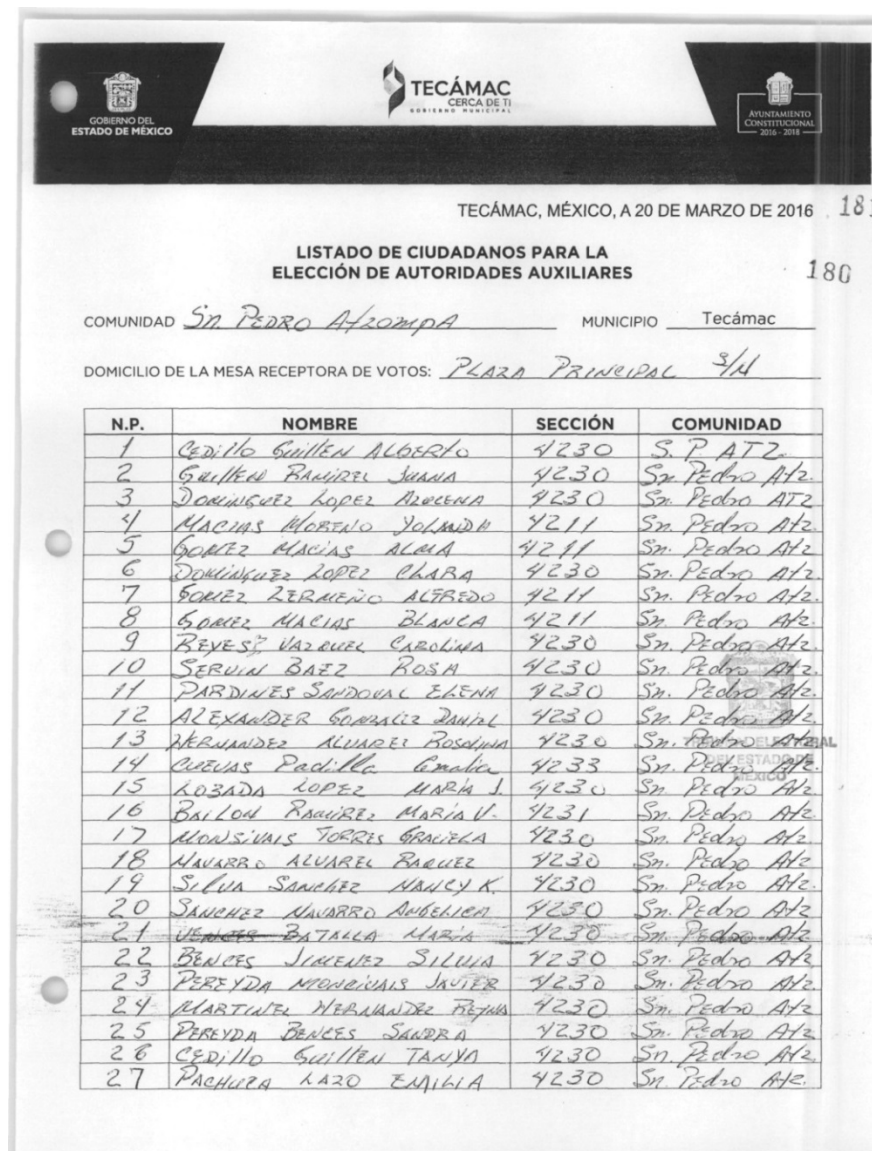 GOBIERNO DEL
ESTADO DE MÉXICO
TECÁMAC
CERCA DE TI
GOBIERNO MUNICIPAL
AYUNTAMIENTO
CONSTITUCIONAL
2016 - 2018
TECÁMAC, MÉXICO, A 20 DE MARZO DE 2016
181
LISTADO DE CIUDADANOS PARA LA
ELECCIÓN DE AUTORIDADES AUXILIARES
180
COMUNIDAD Sn. PEDRO AtzompA MUNICIPIO Tecámac
DOMICILIO DE LA MESA RECEPTORA DE VOTOS: PLAZA PRINCIPAL S/N
N.P. NOMBRE SECCIÓN COMUNIDAD
1 CEDillo GuillEN ALBERTO 4230 S. P. ATZ.
2 GuillEN RAMIREZ JUANA 4230 Sn. Pedro Atz.
3 DOMINGUEZ LOPEZ AZUCENA 4230 Sn. Pedro ATZ
4 MACIAS MORENO YOLANDA 4211 Sn. Pedro Atz.
5 GOMEZ MACIAS ALMA 4211 Sn. Pedro Atz.
6 DOMINGUEZ LOPEZ CLARA 4230 Sn. Pedro Atz.
7 GOMEZ ZERMEÑO ALFREDO 4211 Sn. Pedro Atz.
8 GOMEZ MACIAS BLANCA 4211 Sn. Pedro Atz.
9 REYES VAZQUEZ CAROLINA 4230 Sn. Pedro Atz.
10 SERVIN BAEZ ROSA 4230 Sn. Pedro Atz.
11 PARDINES SANDOVAL ELENA 4230 Sn. Pedro Atz.
12 ALEXANDER GONZALEZ DANIEL 4230 Sn. Pedro Atz.
13 HERNANDEZ ALVAREZ ROSALINA 4230 Sn. Pedro Atz.
14 CUEVAS Padilla 4233 Sn. Pedro Atz.
TRIBUNAL ELECTORAL
DEL ESTADO DE
MÉXICO
15 LOZADA LOPEZ MARIA J. 4230 Sn. Pedro Atz.
16 BAILON RAMIREZ MARÍA V. 4231 Sn. Pedro Atz.
17 MONSIVAIS TORRES GRACIELA 4230 Sn. Pedro Atz.
18 NAVARRO ALVAREZ RAQUEL 4230 Sn. Pedro Atz.
19 SILVA SANCHEZ NANCY K. 4230 Sn. Pedro Atz.
20 SANCHEZ NAVARRO ANGELICA 4230 Sn. Pedro Atz
21 VENCES BATALLA MARÍA 4230 Sn. Pedro Atz.
22 BENCES JIMENEZ SILVIA 4230 Sn. Pedro Atz
23 PEREYDA MONCIVAIS JAVIER 4230 Sn. Pedro Atz.
24 MARTINEZ HERNANDEZ REYNA 4230 Sn. Pedro Atz.
25 PEREYDA BENCES SANDRA 4230 Sn. Pedro Atz.
26 CEDillo GuillEN TANYA 4230 Sn. Pedro Atz.
27 PACHUCA LAZO EMILIA 4230 Sn. Pedro Atz.